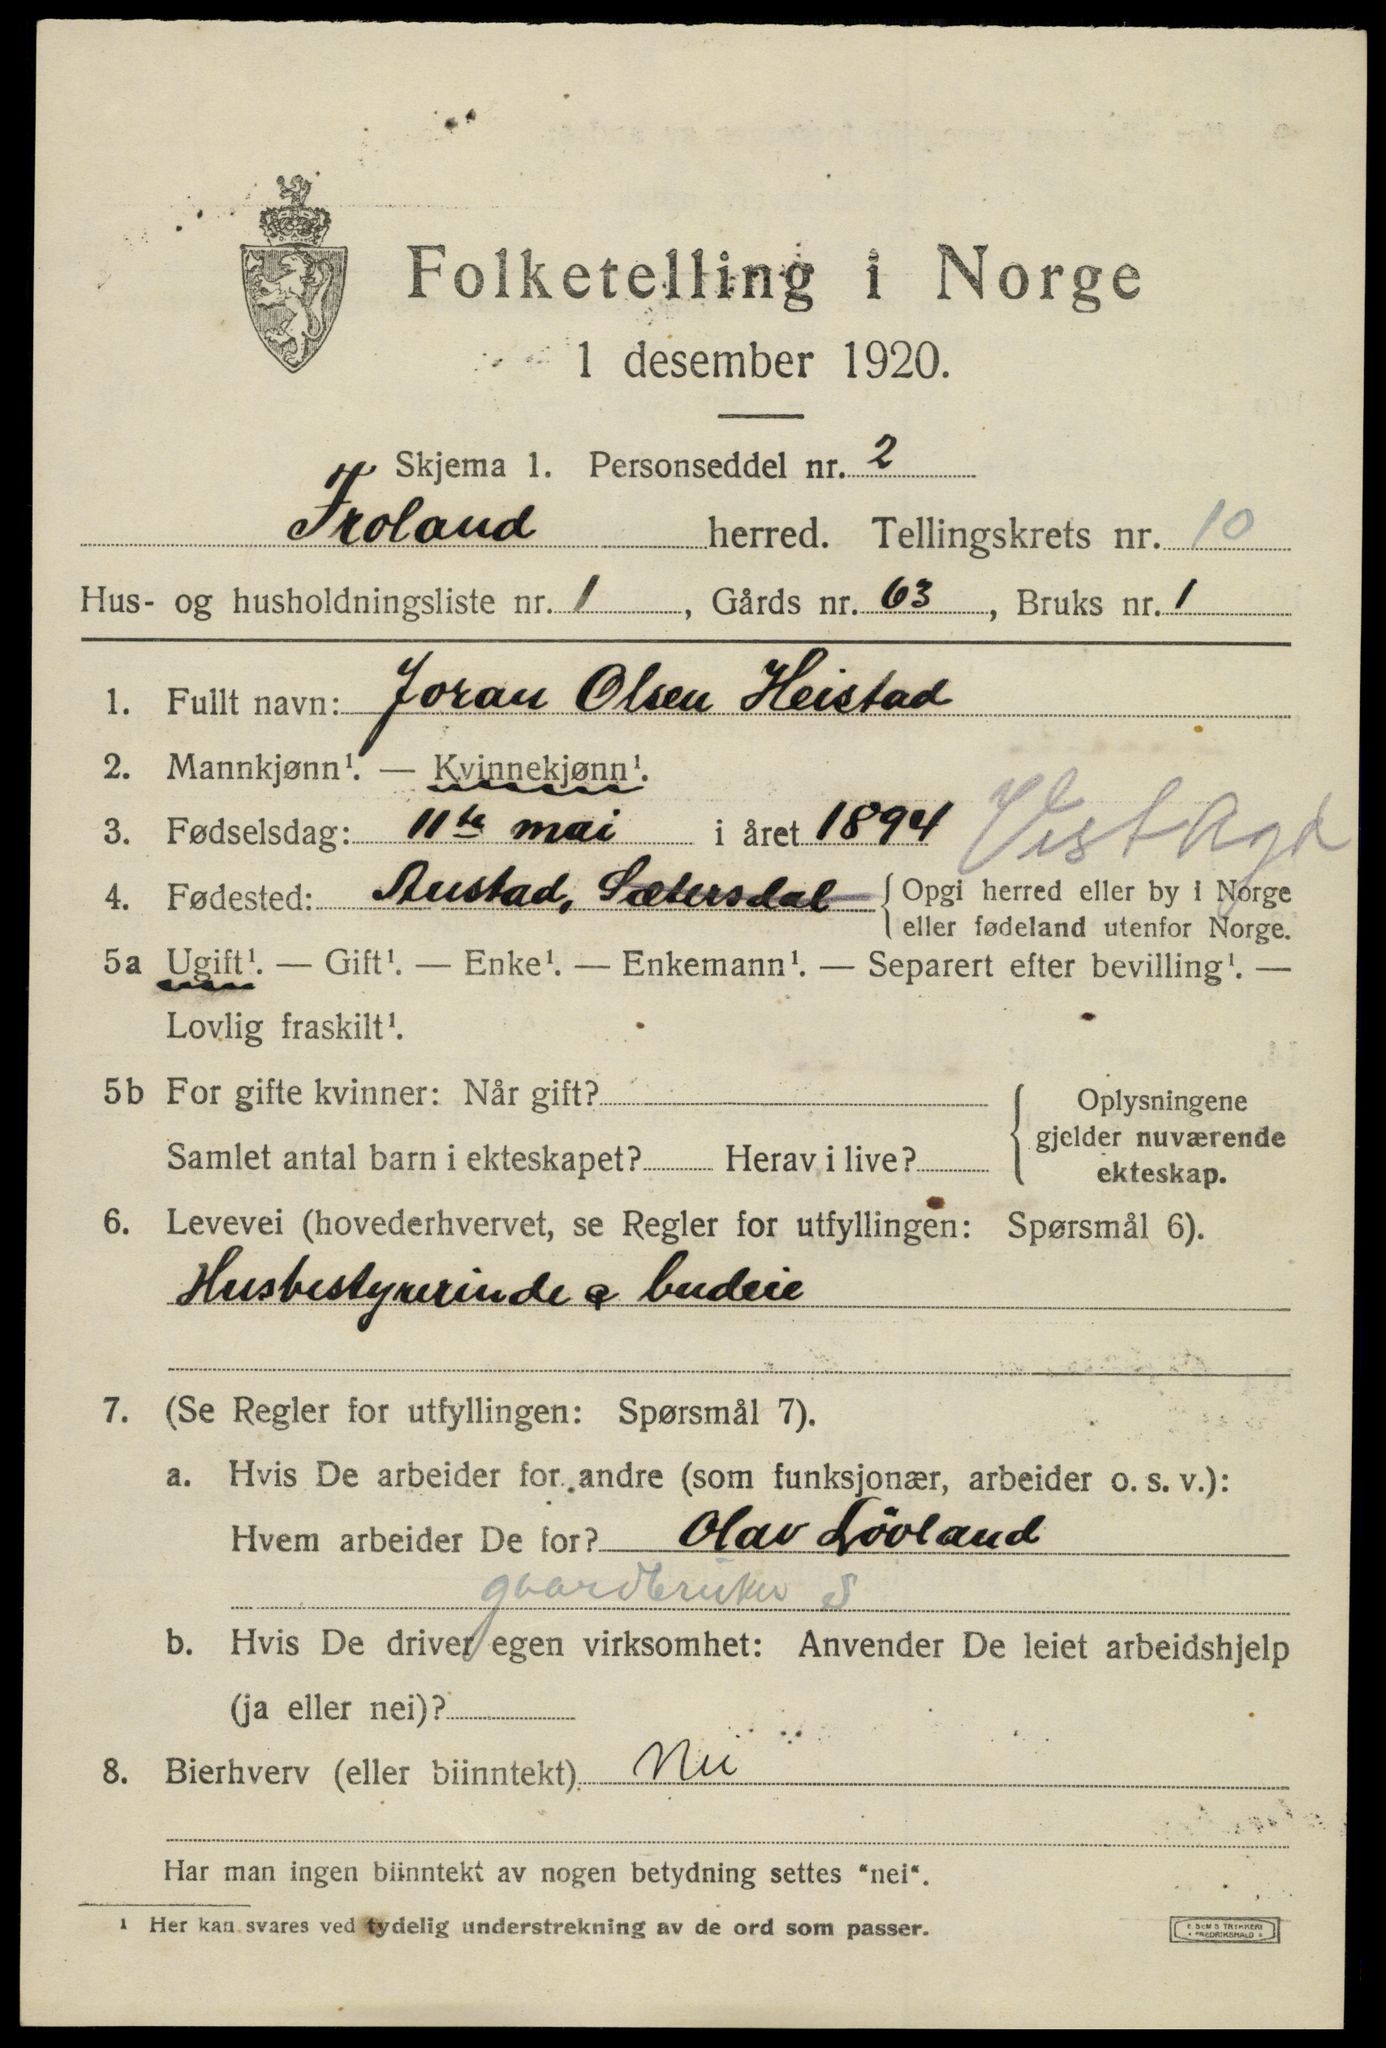 Folketelling i Norge
1 desember 1920.
Skjema 1. Personseddel nr. 2
Froland herred. Tellingskrets nr. 10
Hus- og husholdningsliste nr. 1, Gårds nr. 63, Bruks nr. 1
1. Fullt navn: Joran Olsen Heistad
2. Mannkjønn¹. — Kvinnekjønn¹.
3. Fødselsdag: 11te mai i året 1894
Vest Agd
4. Fødested: Austad, Sætersdal { Opgi herred eller by i Norge
eller fødeland utenfor Norge.
5a Ugift¹. — Gift¹. — Enke¹. — Enkemann¹. — Separert efter bevilling¹. —
Lovlig fraskilt¹.
5b For gifte kvinner: Når gift?
Samlet antal barn i ekteskapet? Herav i live?
Oplysningene
gjelder nuværende
ekteskap.
6. Levevei (hovederhvervet, se Regler for utfyllingen: Spørsmål 6).
Husbestyrerinde & budeie
7. (Se Regler for utfyllingen: Spørsmål 7).
a. Hvis De arbeider for andre (som funksjonær, arbeider o. s. v.):
Hvem arbeider De for? Olav Lövland
gaardbruker S
b. Hvis De driver egen virksomhet: Anvender De leiet arbeidshjelp
(ja eller nei)?
8. Bierhverv (eller biinntekt) Nei
Har man ingen biinntekt av nogen betydning settes “nei“.
¹ Her kan svares ved tydelig understrekning av de ord som passer.
E. SEM'S TRYKKERI
FREDRIKSHALD